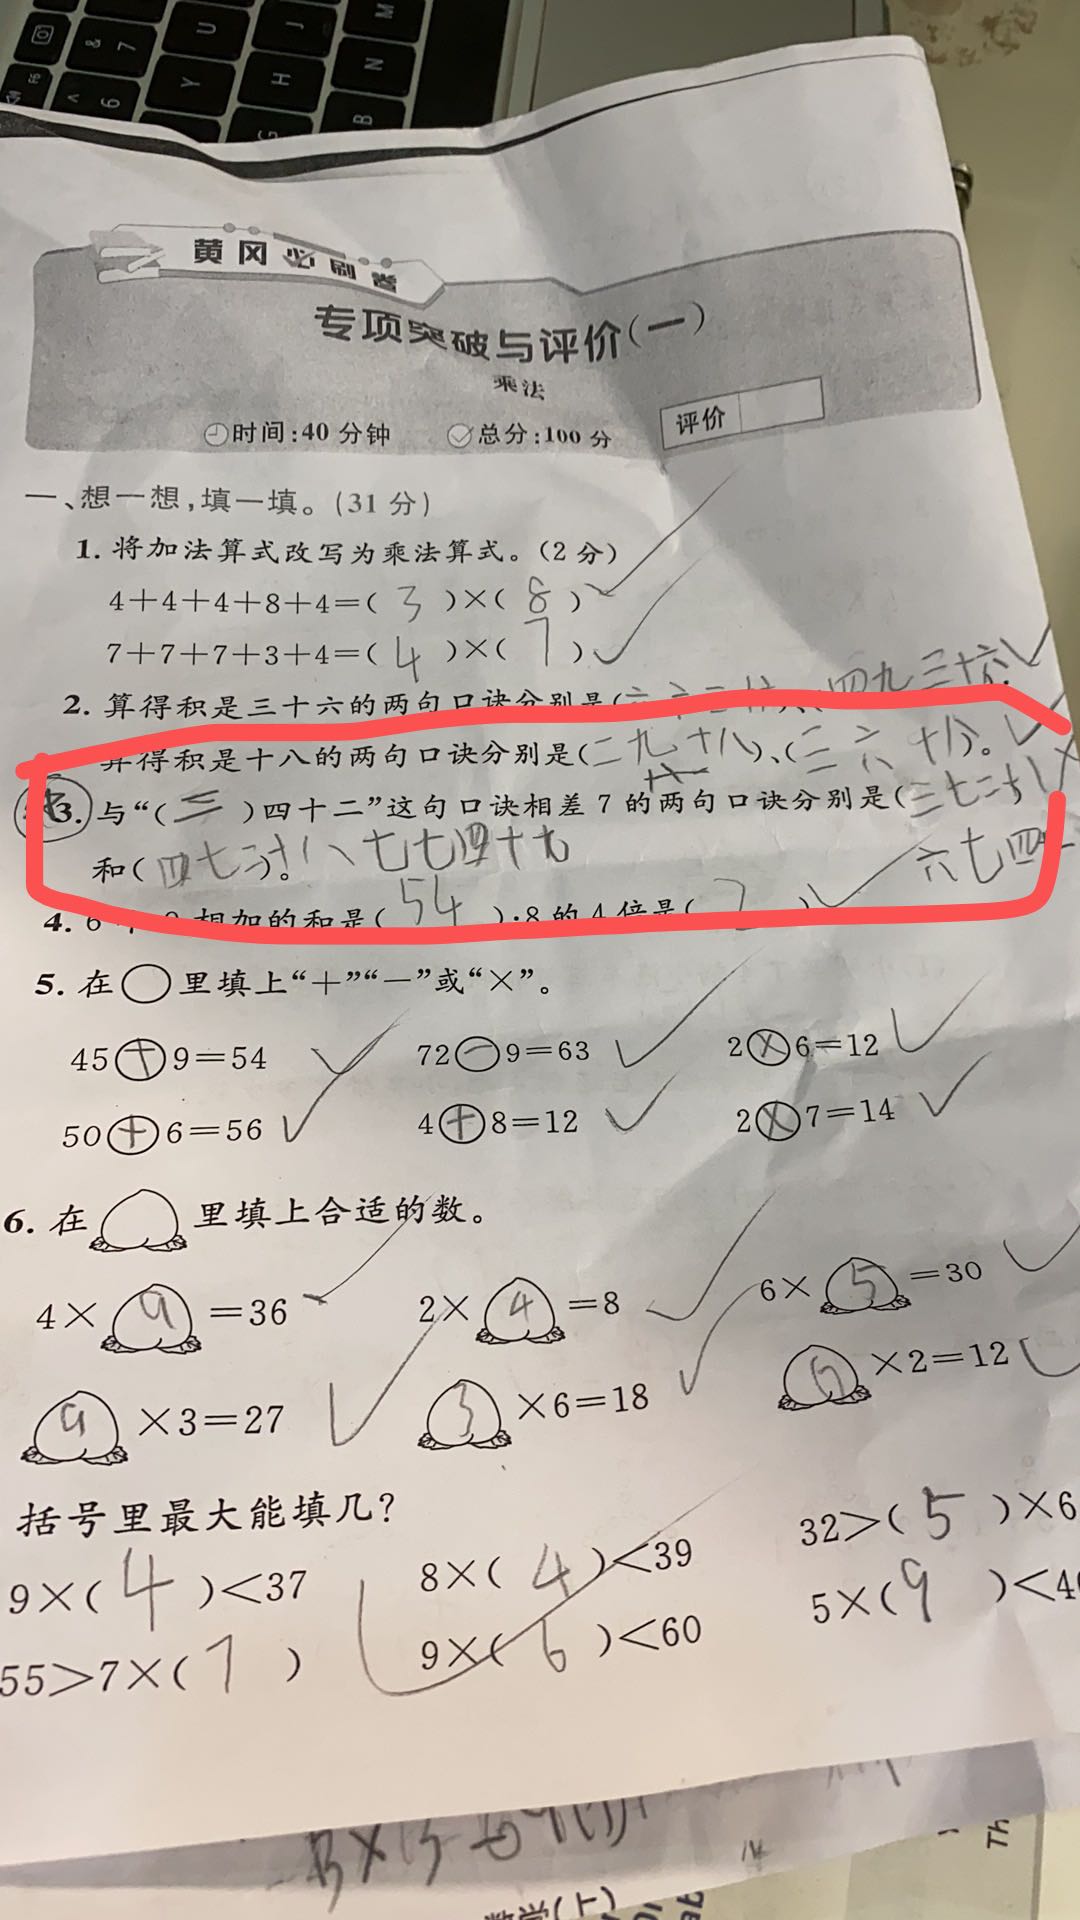 黄冈必刷卷
专项突破与评价(一)
乘法
时间:40分钟 总分:100分 评价
一、想一想,填一填。(31分)
1. 将加法算式改写为乘法算式。(2分)
4+4+4+8+4=( 3 )×( 8 )
7+7+7+3+4=( 4 )×( 7 )
2. 算得积是三十六的两句口诀分别是( 四九三十六
算得积是十八的两句口诀分别是(二九十八)、(三六十八)。
3. 与“( 三 )四十二”这句口诀相差7的两句口诀分别是(三七二十
和(四七二十八)。七七四十九 六七四
4. 6 相加的和是( 54 );8的4倍是(
5. 在○里填上“+”“-”或“×”。
45+9=54 72-9=63 2×6=12
50+6=56 4+8=12 2×7=14
6. 在 里填上合适的数。
4×9=36 2×4=8 6×5=30
9×3=27 3×6=18 6×2=12
括号里最大能填几?
9×( 4 )<37 8×( 4 )<39 32>( 5 )×6
55>7×( 7 ) 9×( 6 )<60 5×( 9 )<4
数学(上)